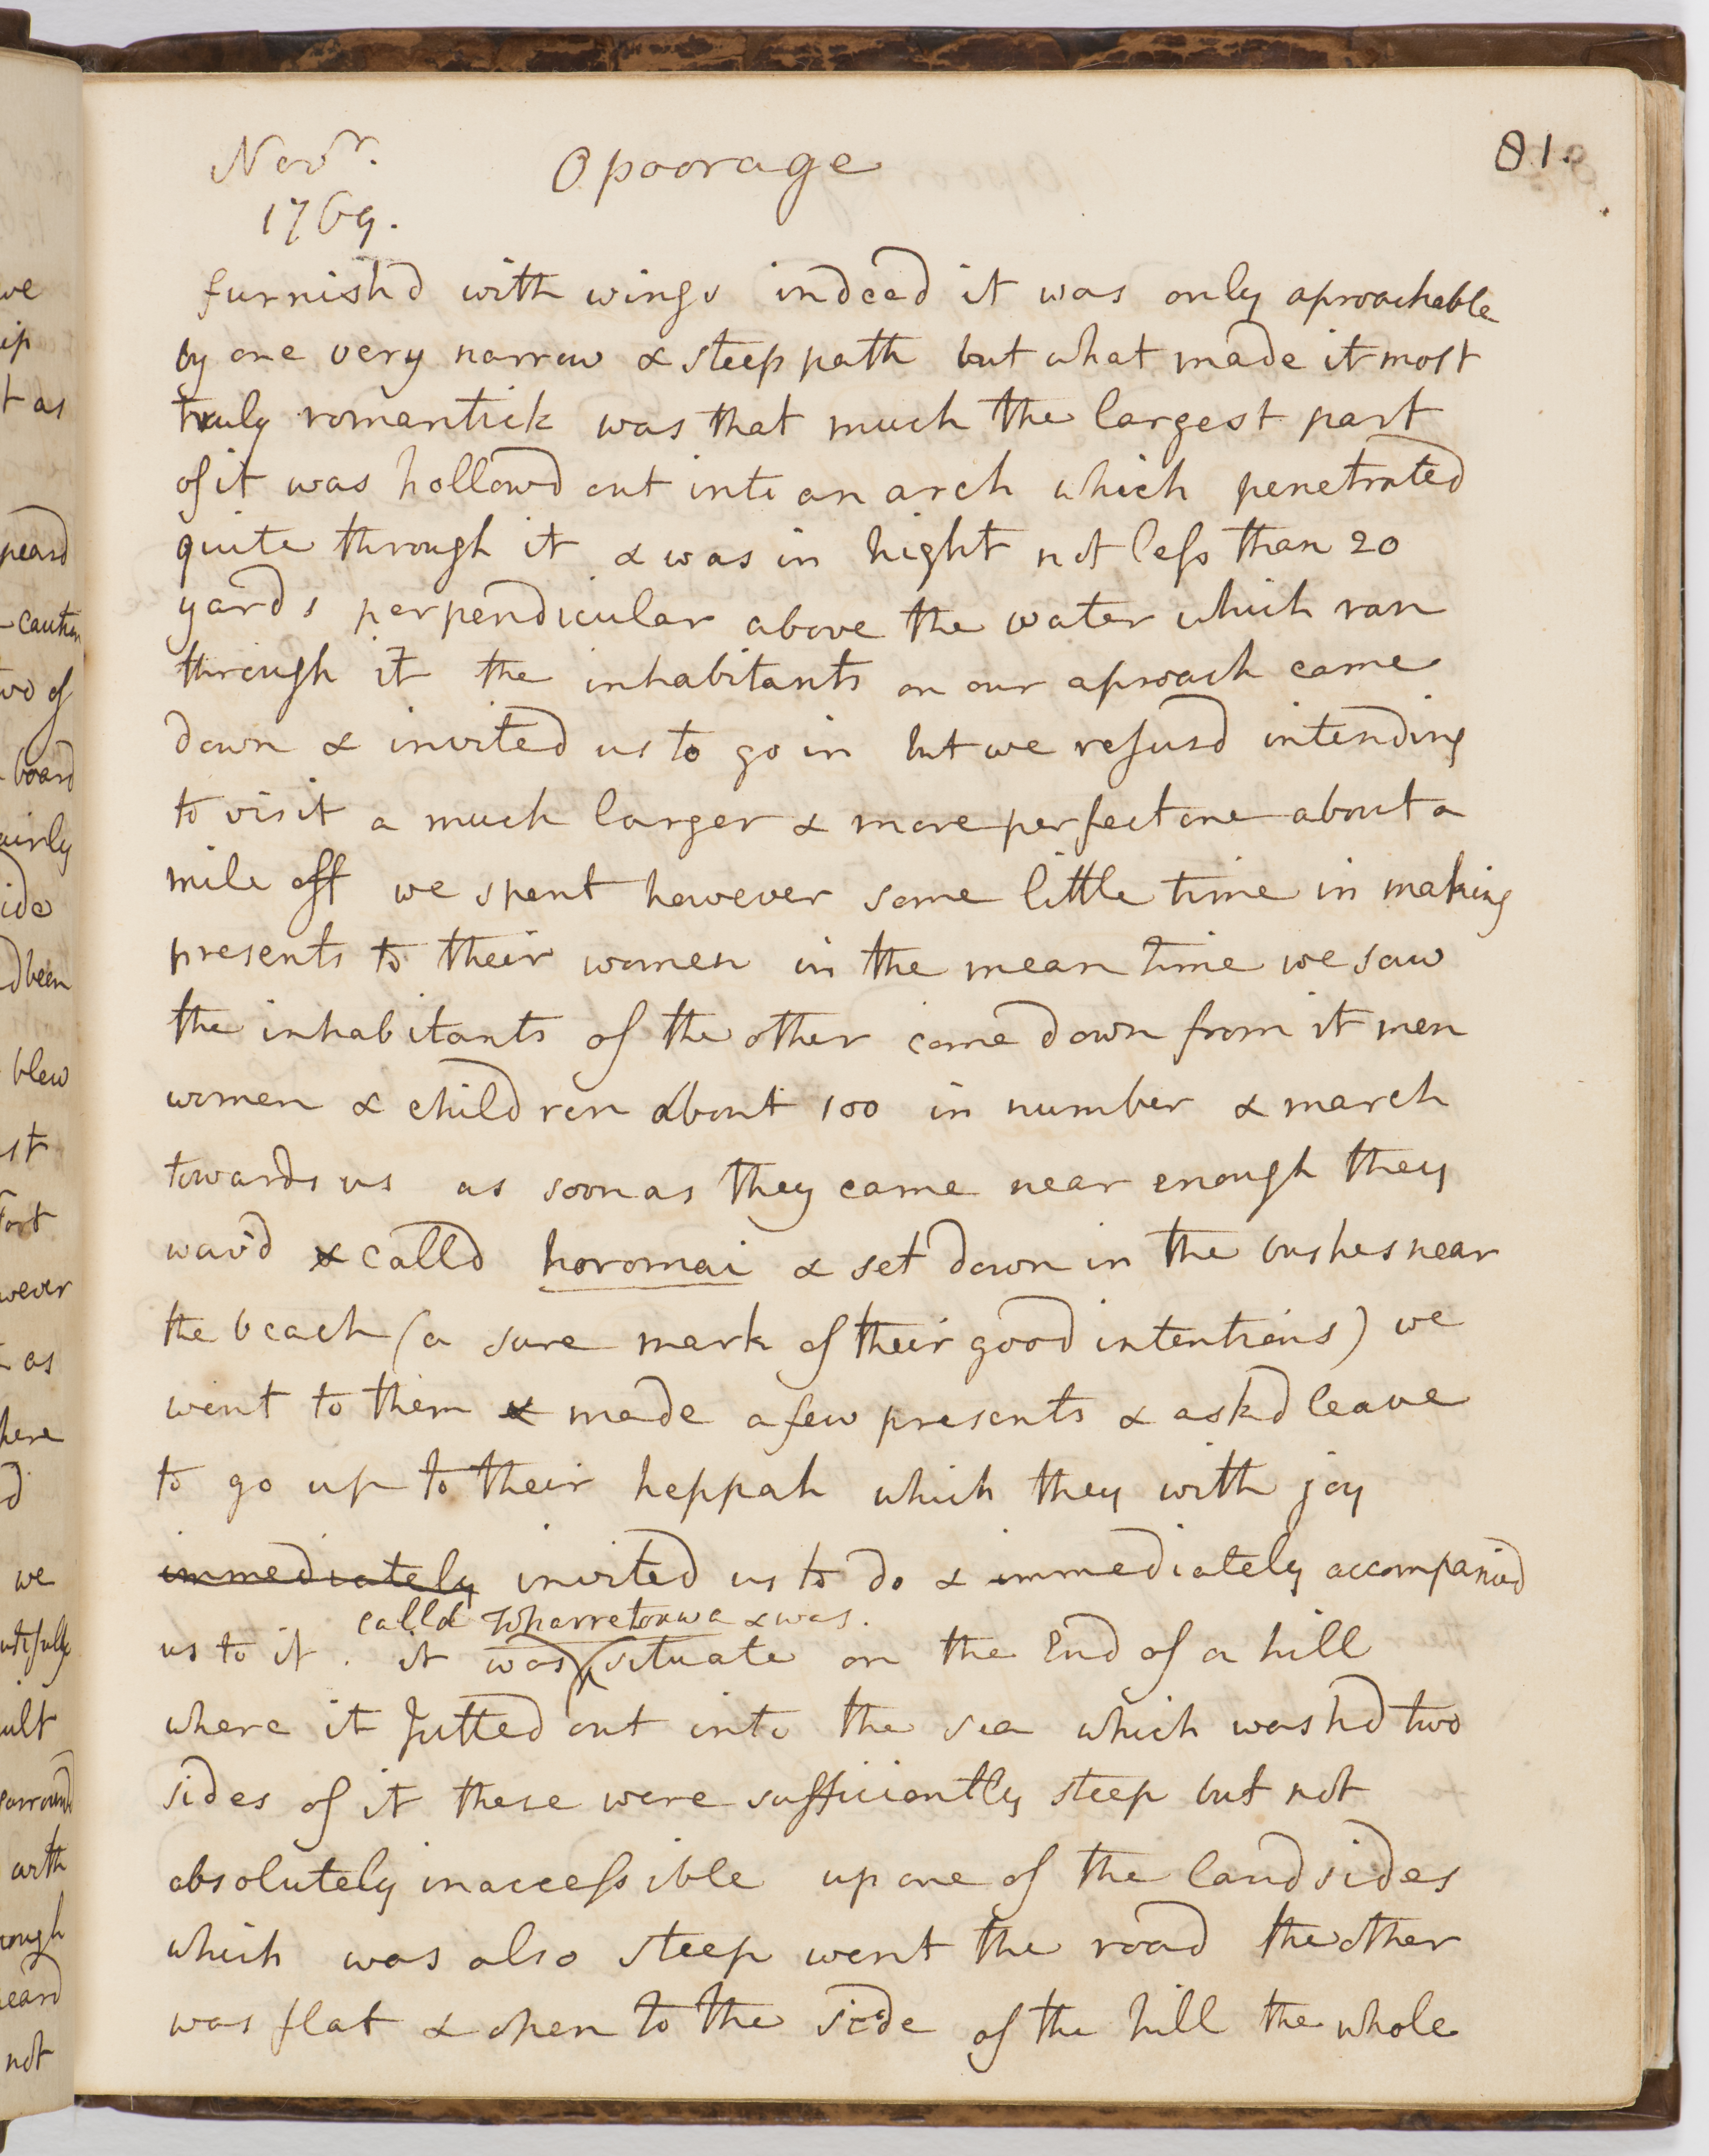 Novr. Opoorage 81.
1769.
furnish'd with wings indeed it was only aproachable
by one very narrow & steep path but what made it most
truly romantick was that much the largest part
of it was hollowd out into an arch which penetrated
quite through it & was in hight not less than 20
yards perpendicular above the water which ran
through it the inhabitants on our aproach came
down & invited us to go in but we refusd intending
to visit a much larger & more perfect one about a
mile off we spent however some little time in making
presents to their women in the mean time we saw
the inhabitants of the other come down from it men
women & children about 100 in number & march
towards us as soon as they came near enough they
wav'd & calld horomai & set down in the bushes near
the beach (a sure mark of their good intentions) we
went to them & made a few presents & askd leave
to go up to their heppah which they with joy
immediately invited us to do & immediately accompanied
calld Wharretouwa & was.
us to it. it was situate on the End of a hill
where it Jutted out into the sea which washd two
sides of it these were sufficiently steep but not
absolutely inaccessible up one of the land sides
which was also steep went the road the other
was flat & open to the side of the hill the whole
we
ip
t as
peard
caution
two of
board
airly
ide
d been
blew
st
Fort
wever
as
here
d
we
utifully
ult
with
rough
eard
not